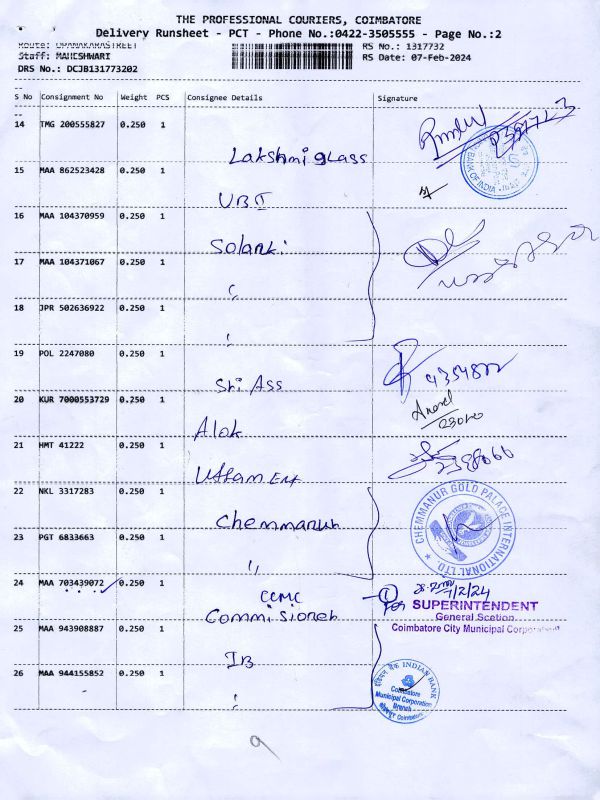 THE PROFESSIONAL COURIERS, COIMBATORE
Delivery Runsheet - PCT - Phone No.:0422-3505555 - Page No.:2
Route: UPANAKARASTREET
Staff: MAHESHWARI
DRS No.: DCJB131773202
RS No.: 1317732
RS Date: 07-Feb-2024
S No Consignment No Weight PCS Consignee Details Signature
14 TMG 200555827 0.250 1 Lakshmi glass
15 MAA 862523428 0.250 1 UBI
BANK OF INDIA
16 MAA 104370959 0.250 1 Solanki
17 MAA 104371067 0.250 1 "
18 JPR 502636922 0.250 1 "
19 POL 2247080 0.250 1 Shi Ass
20 KUR 7000553729 0.250 1 Alok
21 HMT 41222 0.250 1 Uttam Ent
22 NKL 3317283 0.250 1 Chemmanur
23 PGT 6833663 0.250 1 "
CHEMMANUR GOLD PALACE INTERNATIONAL LTD.
24 MAA 703439072 0.250 1 CCMC Commisioner
7/2/24
For SUPERINTENDENT
General Scetion
Coimbatore City Municipal Corporation
25 MAA 943908887 0.250 1 IB
26 MAA 944155852 0.250 1 "
इंडियन बैंक INDIAN BANK
Coimbatore
Municipal Corporation
Branch
Coimbatore
9